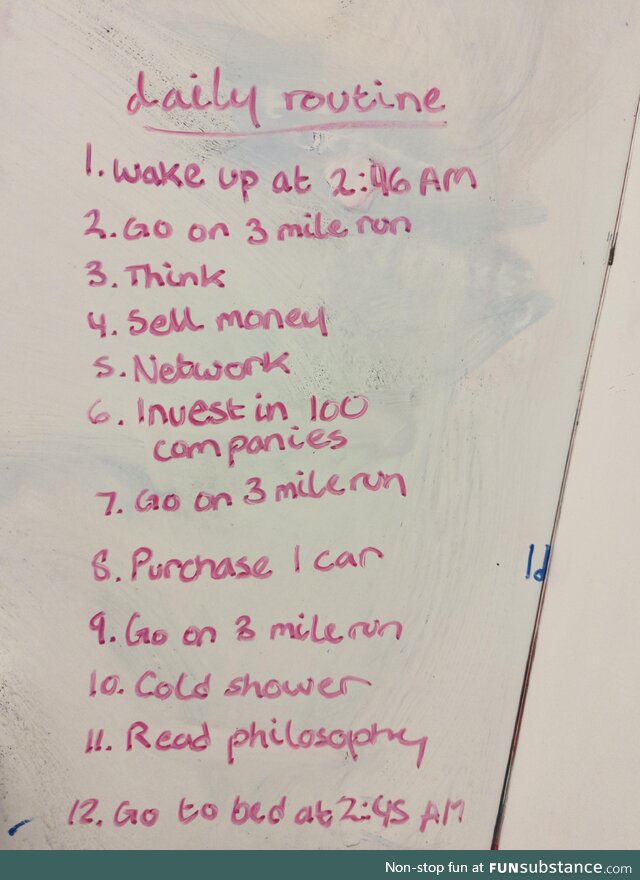 daily routine
1. Wake up at 2:46 AM
2. Go on 3 mile run
3. Think
4. Sell money
5. Network
6. Invest in 100
companies
7. Go on 3 mile run
8. Purchase 1 car
9. Go on 3 mile run
10. Cold shower
11. Read philosophy
12. Go to bed at 2:45 AM
Non-stop fun at FUNsubstance.com